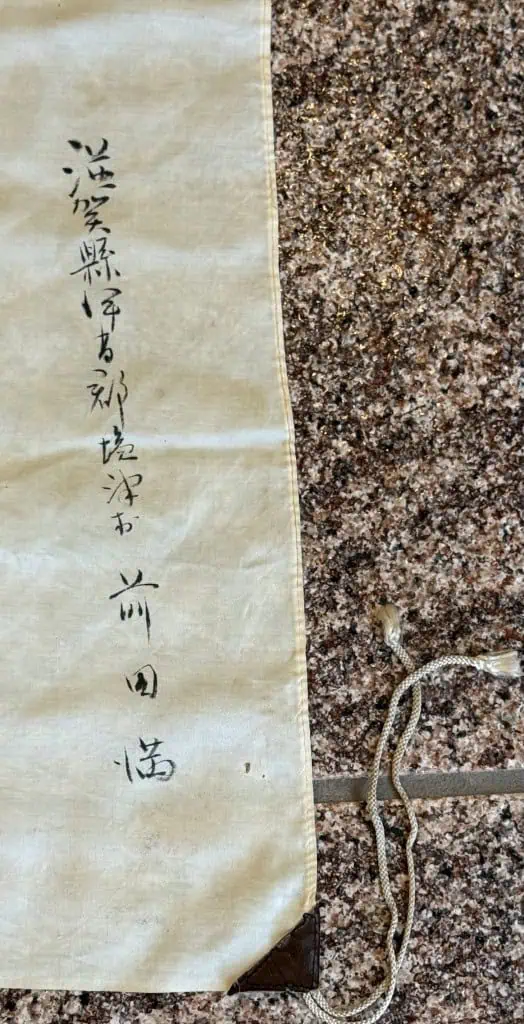 滋賀縣伊香郡塩津村 前田満